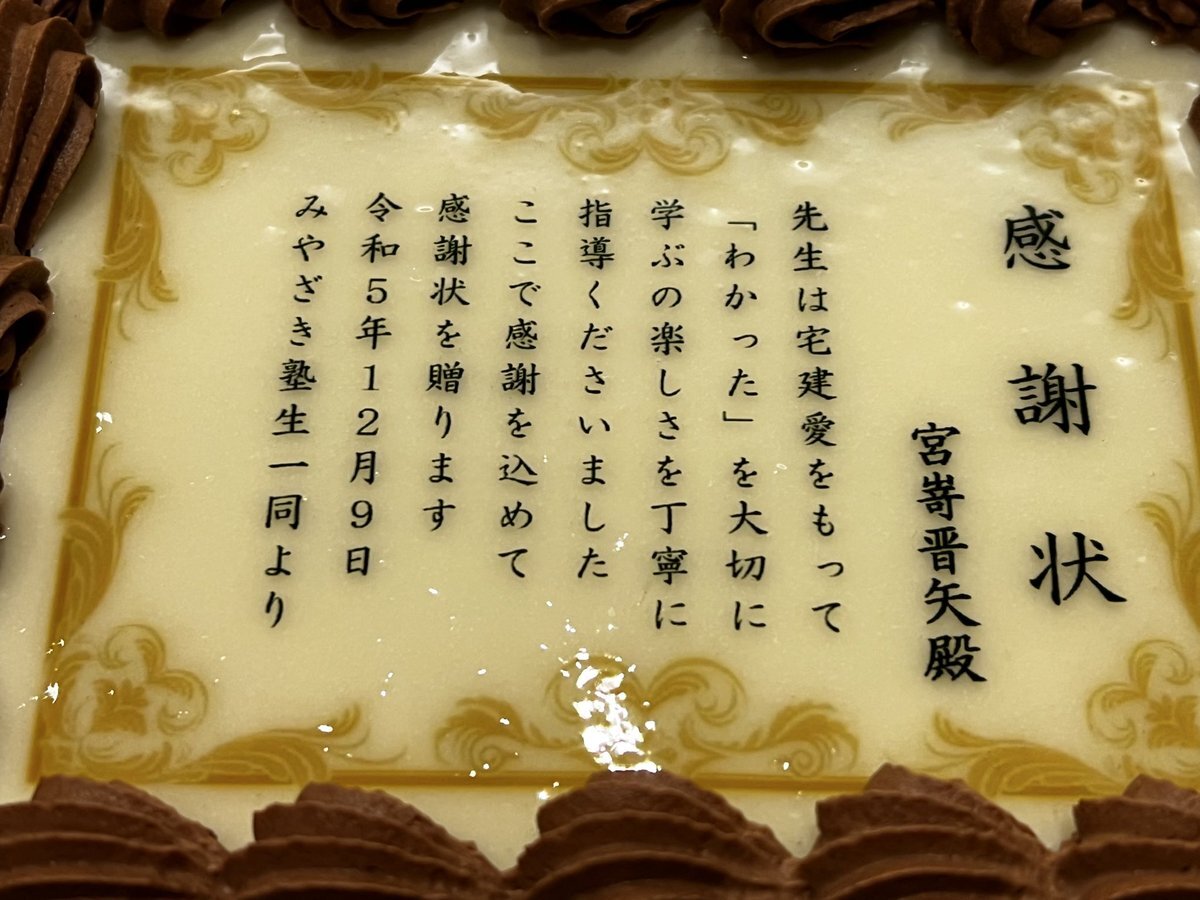 感謝状
宮嵜晋矢殿
先生は宅建愛をもって
「わかった」を大切に
学ぶの楽しさを丁寧に
指導くださいました
ここで感謝を込めて
感謝状を贈ります
令和5年12月9日
みやざき塾生一同より